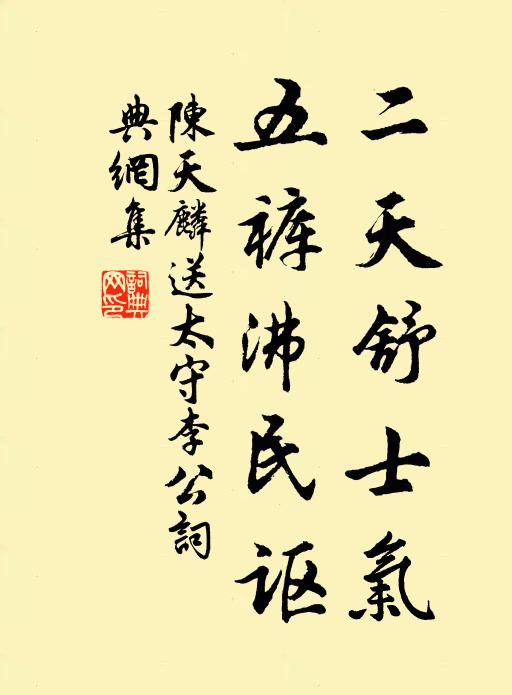 二天舒士氣
五裤沸民讴
陳天麟送太守李公詞
典網集
詞典网印